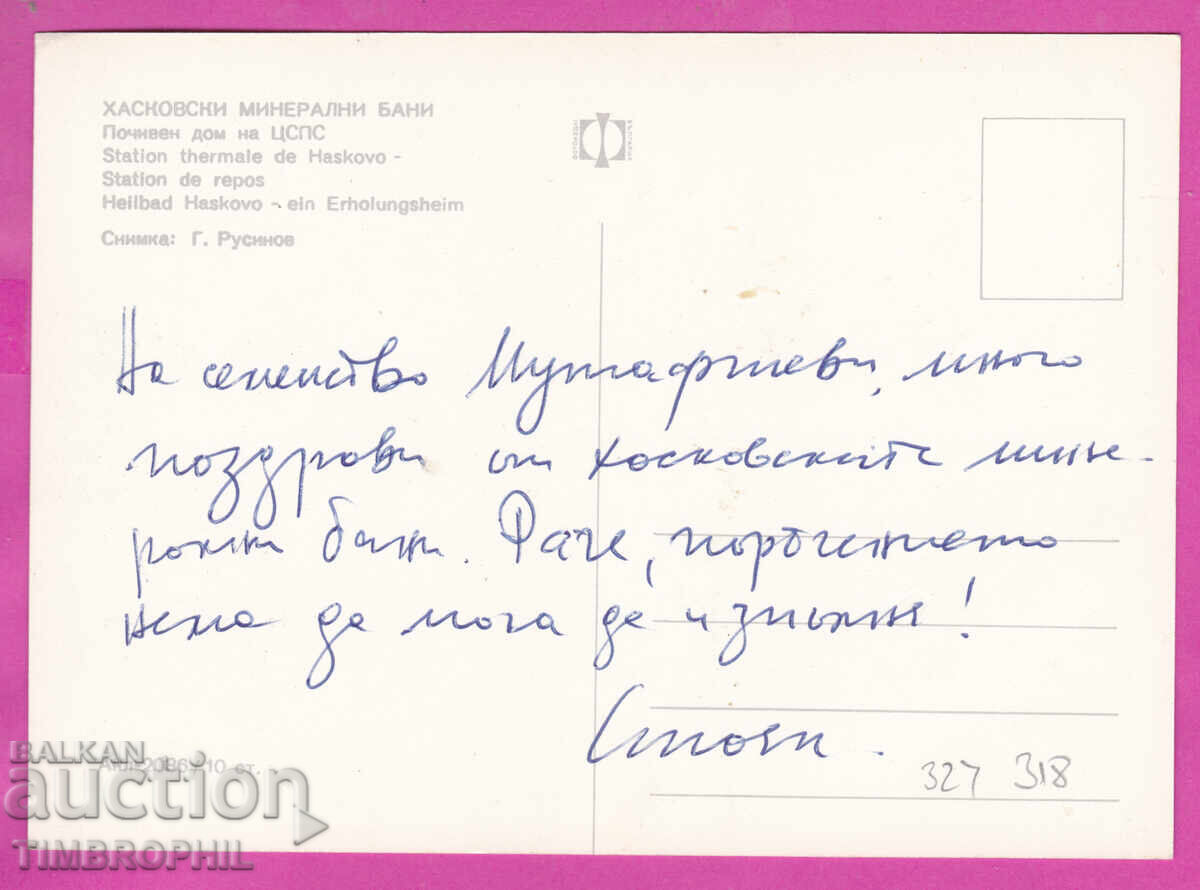 ХАСКОВСКИ МИНЕРАЛНИ БАНИ
Почивен дом на ЦСПС
Station thermale de Haskovo -
Station de repos
Heilbad Haskovo - ein Erholungsheim
Снимка: Г. Русинов
БЪЛГАРСКИ
На семейство Мутафчиеви, много
поздрави от хасковските мине-
рални бани. Раче, поръчението
няма да мога да изпълня!
Стоян.
327 318
10 ст.
BALKAN
auction
TIMBROPHIL